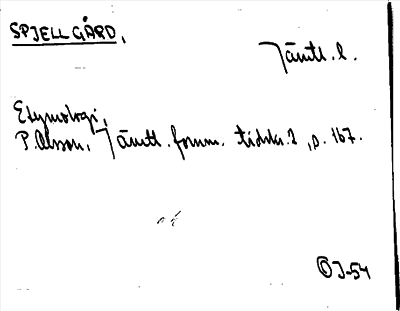 SPJELLGÅRD.
Jämtl. l.
Etymologi.
P. Olsson, Jämtl. fornm. tidskr. 2, p. 167.
ÖJ-54